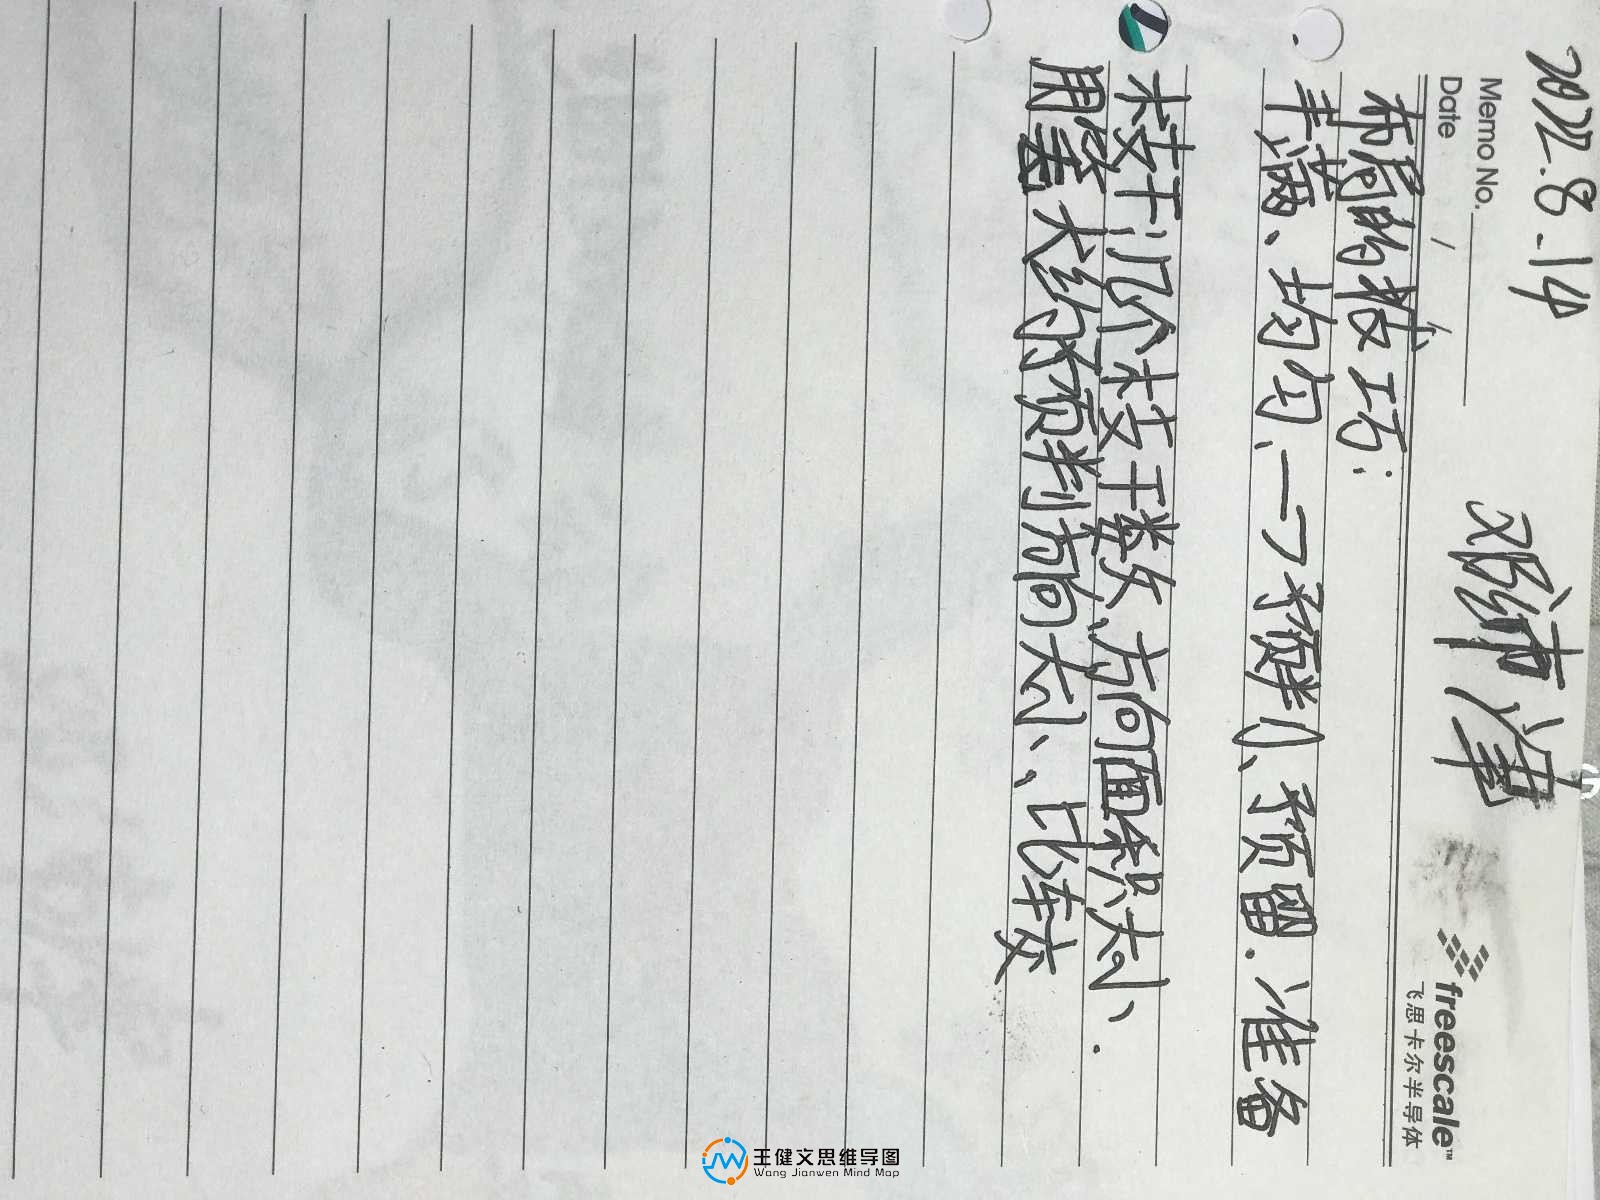 2022.8.14 邓沛津
Memo No.
Date / /
freescale™
飞思卡尔半导体
布局的技巧:
丰满、均匀、一7预判、预留.准备
枝干几个枝干数、方向面积大小、.
用笔大约预判方向大小、比较
王健文思维导图
Wang Jianwen Mind Map